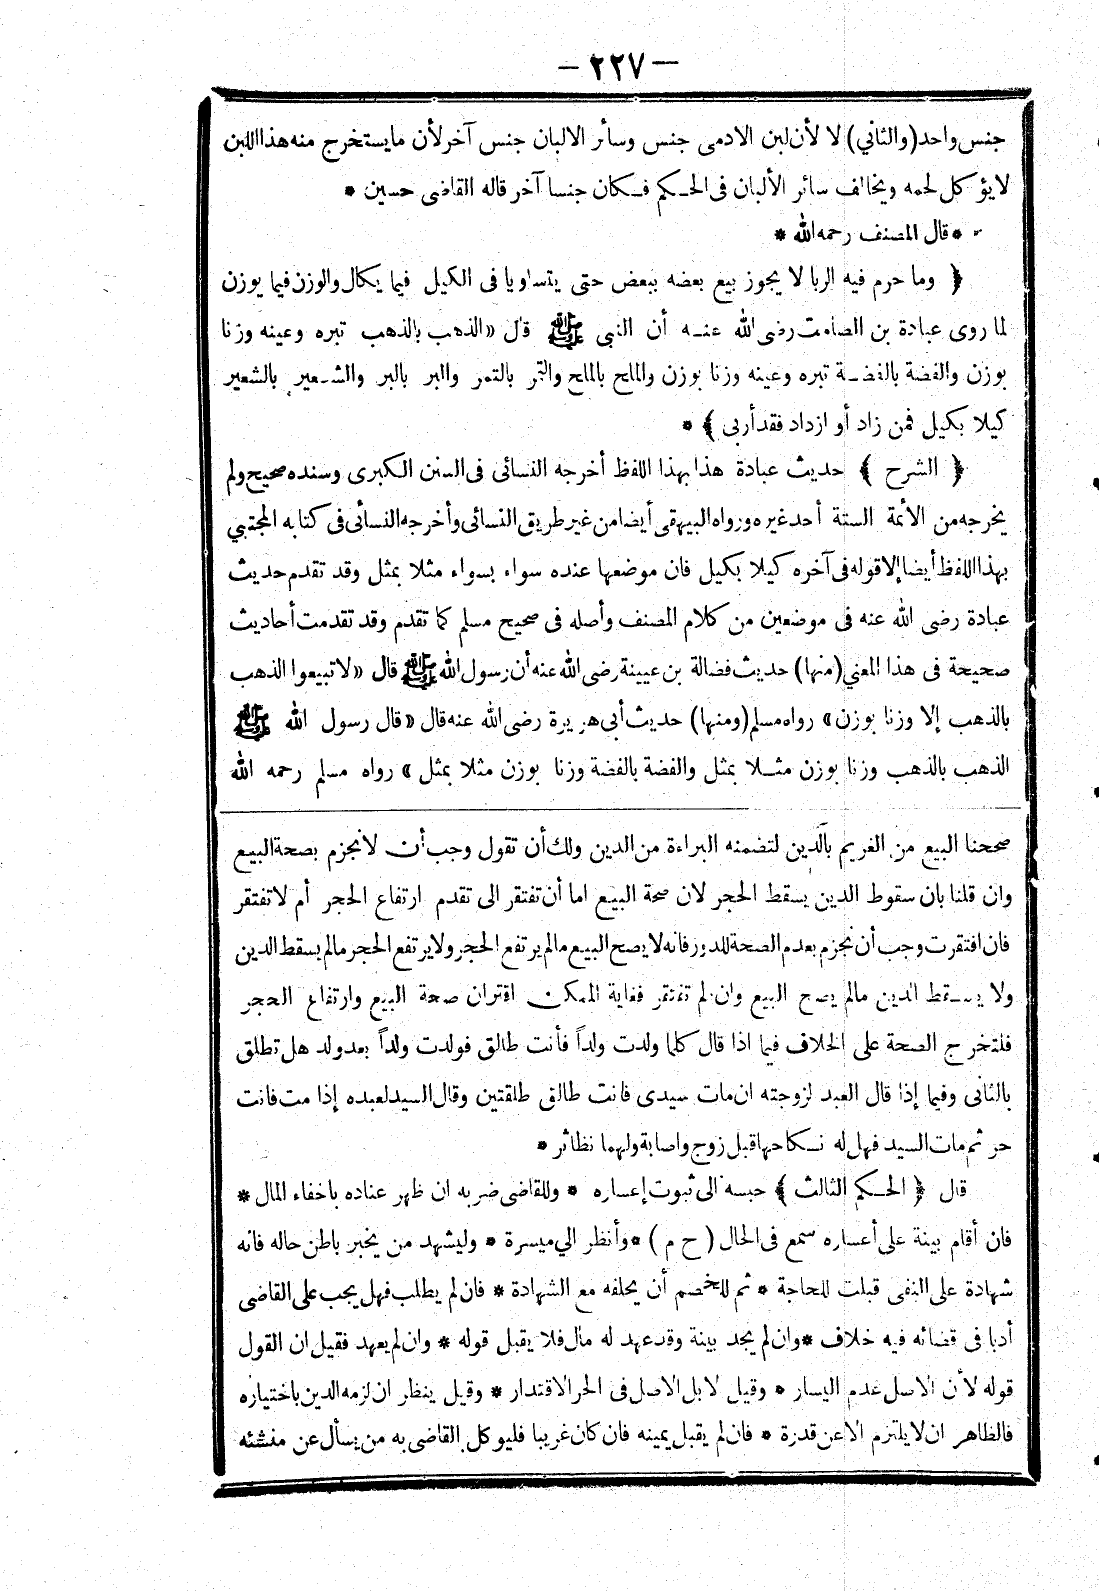 — ٢٢٧ —
جنس واحد (والثاني) لا لأن لبن الادمى جنس وسائر الالبان جنس آخر لأن ما يستخرج منه هذا اللبن
لا يؤكل لحمه ويخالف سائر الألبان فى الحكم فكان جنسا آخر قاله القاضى حسين *
* قال المصنف رحمه الله *
﴿ وما حرم فيه الربا لا يجوز بيع بعضه ببعض حتى يتساويا فى الكيل فيما يكال والوزن فيما يوزن
لما روى عبادة بن الصامت رضى الله عنه أن النبى ﷺ قال «الذهب بالذهب تبره وعينه وزنا
بوزن والفضة بالفضة تبره وعينه وزنا بوزن والملح بالملح والتمر بالتمر والبر بالبر والشعير بالشعير
كيلا بكيل فمن زاد أو ازداد فقد أربى ﴾ *
﴿ الشرح ﴾ حديث عبادة هذا بهذا اللفظ أخرجه النسائى فى السنن الكبرى وسنده صحيح ولم
يخرجه من الأئمة الستة أحد غيره ورواه البيهقى أيضا من غير طريق النسائى وأخرجه النسائى فى كتابه المجتبي
بهذا اللفظ أيضا إلا قوله فى آخره كيلا بكيل فان موضعها عنده سواء بسواء مثلا بمثل وقد تقدم حديث
عبادة رضى الله عنه فى موضعين من كلام المصنف وأصله فى صحيح مسلم كما تقدم وقد تقدمت أحاديث
صحيحة فى هذا المعني (منها) حديث فضالة بن عيينة رضى الله عنه أن رسول الله ﷺ قال «لا تبيعوا الذهب
بالذهب إلا وزنا بوزن» رواه مسلم (ومنها) حديث أبى هريرة رضى الله عنه قال «قال رسول الله ﷺ
الذهب بالذهب وزنا بوزن مثلا بمثل والفضة بالفضة وزنا بوزن مثلا بمثل» رواه مسلم رحمه الله
صححنا البيع من الغريم بالدين لتضمنه البراءة من الدين ولك أن تقول وجب أن لا نجزم بصحة البيع
وان قلنا بان سقوط الدين يسقط الحجر لان صحة البيع اما أن تفتقر الى تقدم ارتفاع الحجر أم لا تفتقر
فان افتقرت وجب أن نجزم بعدم الصحة للدور فانه لا يصح البيع مالم يرتفع الحجر ولا يرتفع الحجر مالم يسقط الدين
ولا يسقط الدين مالم يصح البيع وان لم تفتقر فغاية الممكن اقتران صحة البيع وارتفاع الحجر
فلتخرج الصحة على الخلاف فيما اذا قال كلما ولدت ولداً فأنت طالق فولدت ولداً بعد ولد هل تطلق
بالثانى وفيما إذا قال العبد لزوجته ان مات سيدى فانت طالق طلقتين وقال السيد لعبده إذا مت فانت
حر ثم مات السيد فهل له نكاحها قبل زوج واصابة ولهما نظائر *
قال ﴿ الحكم الثالث ﴾ حبسه الى ثبوت إعساره * وللقاضى ضربه ان ظهر عناده باخفاء المال *
فان أقام بينة على أعساره سمع فى الحال ( ح م ) * وأنظر الي ميسرة * وليشهد من يخبر باطن حاله فانه
شهادة على النفى قبلت للحاجة * ثم للخصم أن يحلفه مع الشهادة * فان لم يطلب فهل يجب على القاضى
أدبا فى قضائه فيه خلاف * وان لم يجد بينة وقد عهد له مال فلا يقبل قوله * وان لم يعهد فقيل ان القول
قوله لأن الاصل عدم اليسار * وقيل لا بل الاصل فى الحر الاقتدار * وقيل ينظر ان لزمه الدين باختياره
فالظاهر ان لا يلتزم الا عن قدرة * فان لم يقبل يمينه فان كان غريبا فليوكل القاضى به من يسأل عن منشئه